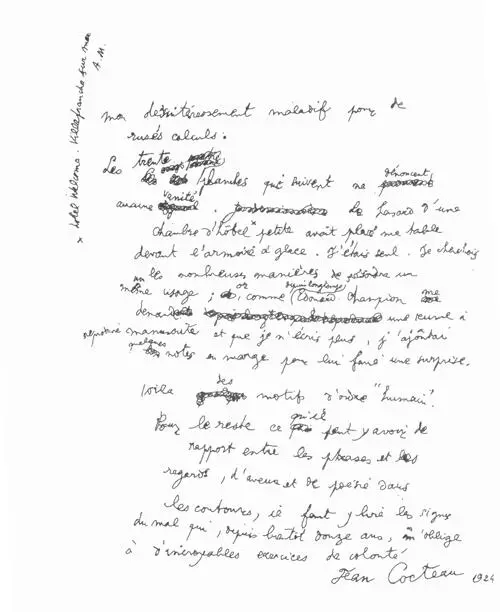 * Hôtel Welcome. Villefranche sur mer
A.M.
mon désintéressement maladif pour de
rusés calculs.
Les trente planches qui suivent ne dénoncent
aucune vanité. Le hasard d'une
chambre d'hôtel * petite avait placé ma table
devant l'armoire à glace. J'étais seul. Je cherchais
les nombreuses manières de résoudre un
même visage ; or, comme Edouard Champion me
demandait une œuvre à
reproduire manuscrite et que je n'écris plus, j'ajoutai
quelques notes en marge pour lui faire une surprise.
Voilà des motifs d'ordre "humain".
Pour le reste ce qu'il peut y avoir de
rapport entre les phrases et les
regards, d'aveux et de poésie dans
les contours, il faut y lire les signes
du mal qui, depuis bientôt douze ans, m'oblige
à d'incroyables exercices de volonté
Jean Cocteau 1924